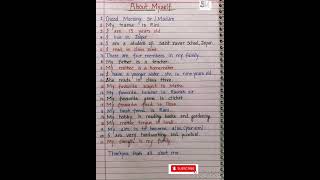 About Myself
1. Good Morning Sir/Madam
2. My name is Rini
3. I am 15 years old
4. I live in Jaipur
5. I am a student of Saint Xavier School, Jaipur.
6. I read in class nine.
7. There are four members in my family.
8. My father is a teacher.
9. My mother is a homemaker
10. I have a younger sister, she is nine years old
She reads in class three.
My favorite subject is Maths.
My favorite teacher is Ramesh sir
My favorite game is cricket
My favorite food is Dosa
My best friend is Rani.
My hobby is reading books and gardening.
My mother tongue is hindi.
My aim is to become a/an (your aim)
I am very hardworking and punctual.
My strength is my family.
Thankyou that's all about me.
SUBSCRIBE